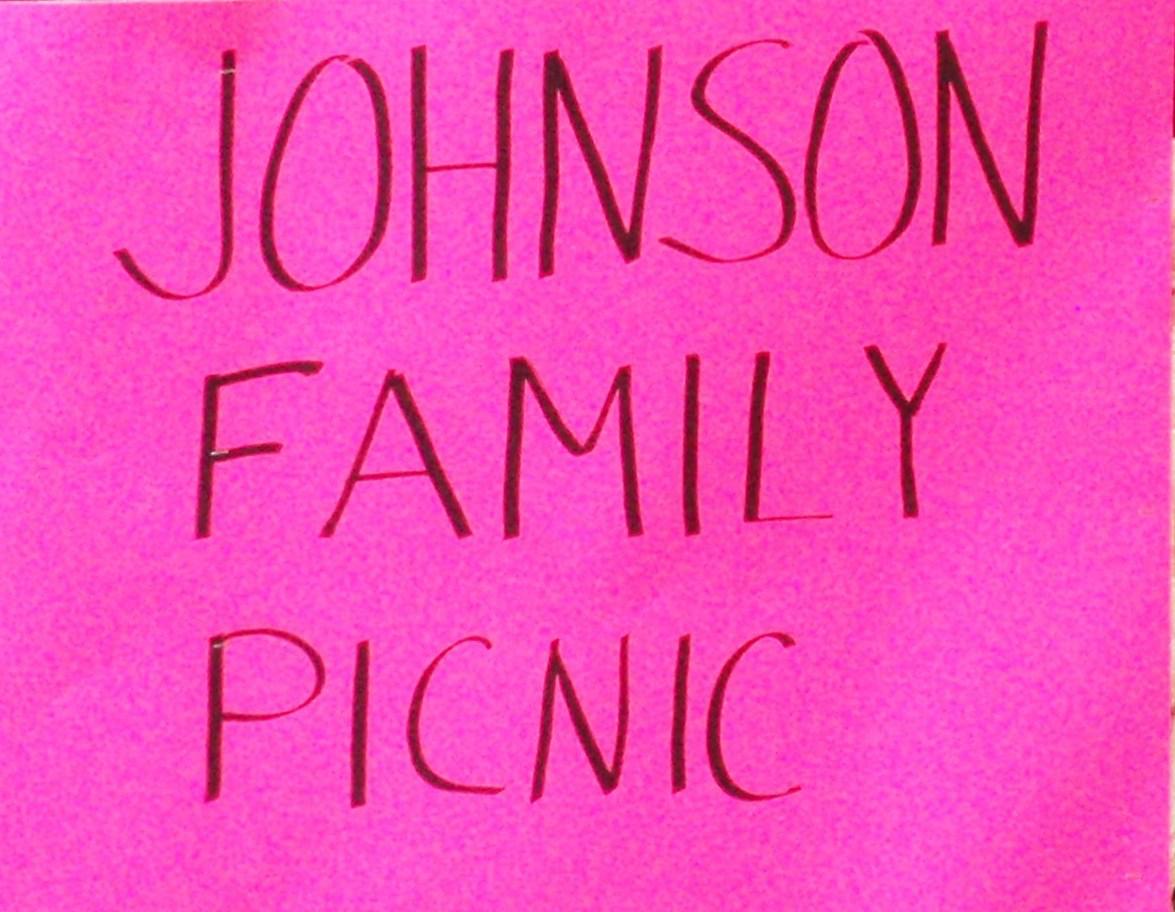 JOHNSON
FAMILY
PICNIC